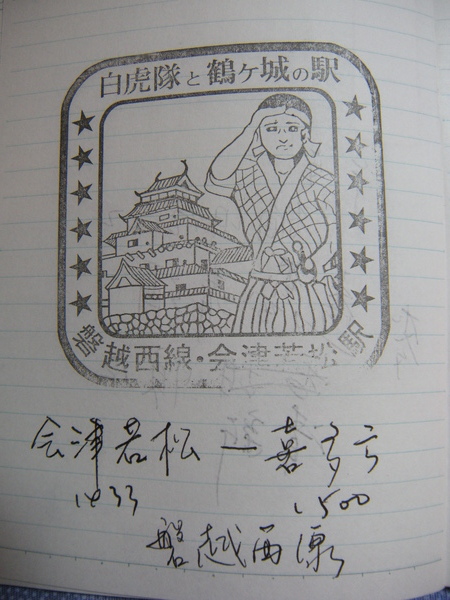 白虎隊と鶴ヶ城の駅
磐越西線・会津若松駅
会津若松 — 喜多方
1433 1500
磐越西線